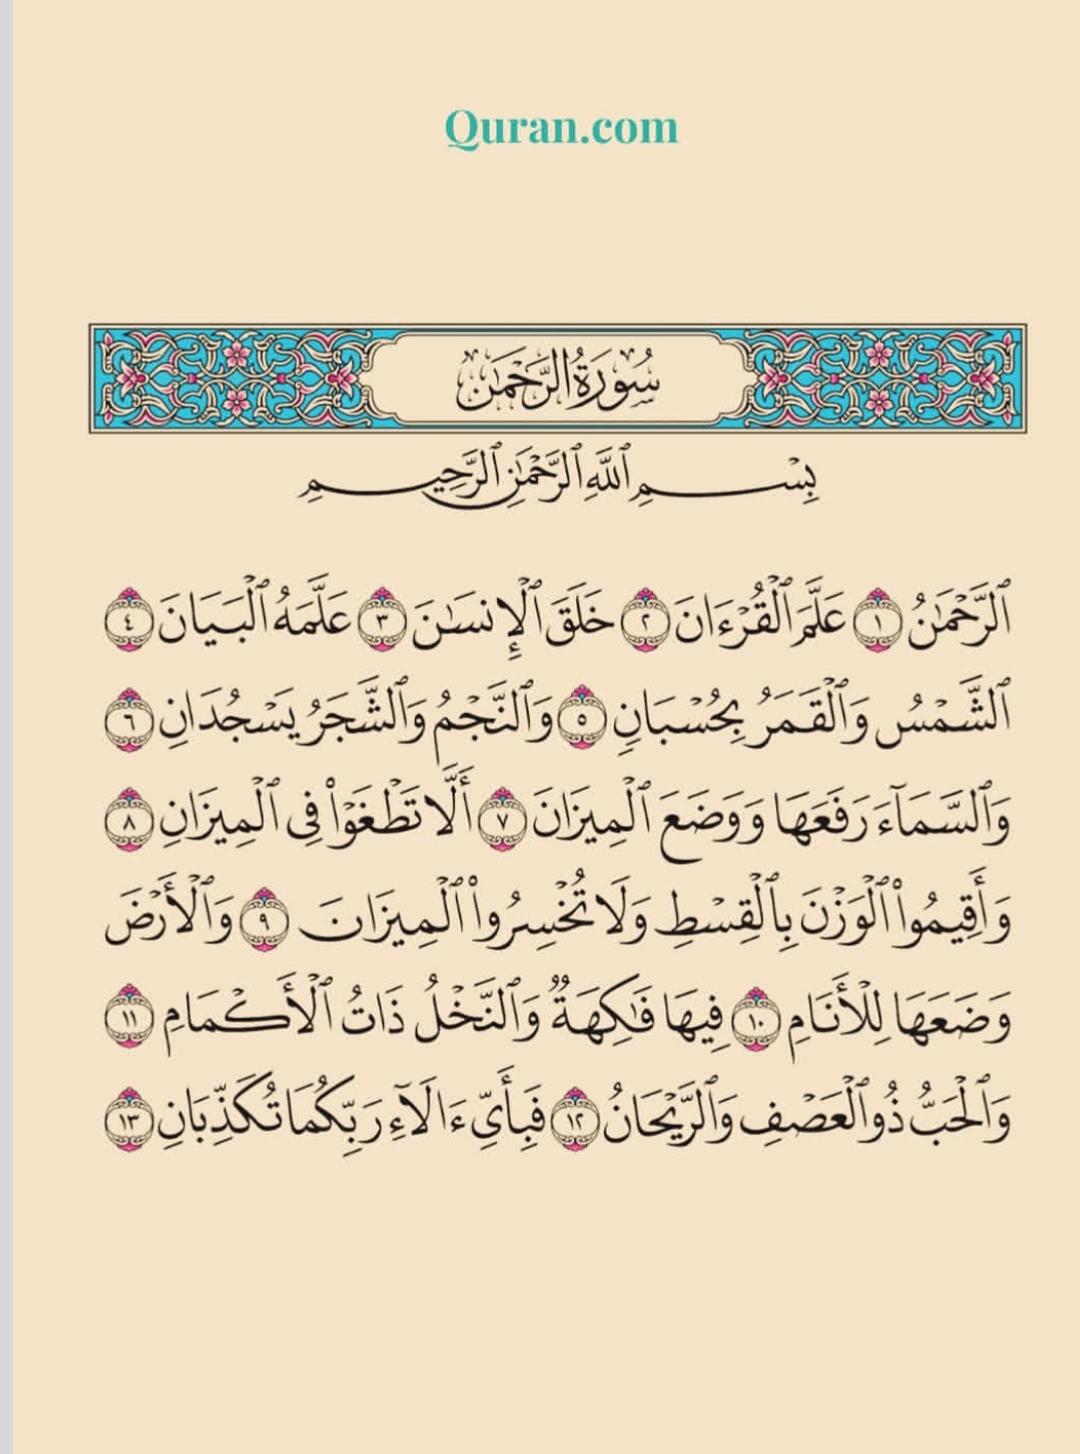 Quran.com
سُورَةُ الرَّحْمَٰن
بِسْمِ ٱللَّهِ ٱلرَّحْمَٰنِ ٱلرَّحِيمِ
ٱلرَّحْمَٰنُ ١ عَلَّمَ ٱلْقُرْءَانَ ٢ خَلَقَ ٱلْإِنسَٰنَ ٣ عَلَّمَهُ ٱلْبَيَانَ ٤
ٱلشَّمْسُ وَٱلْقَمَرُ بِحُسْبَانٍ ٥ وَٱلنَّجْمُ وَٱلشَّجَرُ يَسْجُدَانِ ٦
وَٱلسَّمَآءَ رَفَعَهَا وَوَضَعَ ٱلْمِيزَانَ ٧ أَلَّا تَطْغَوْا۟ فِى ٱلْمِيزَانِ ٨
وَأَقِيمُوا۟ ٱلْوَزْنَ بِٱلْقِسْطِ وَلَا تُخْسِرُوا۟ ٱلْمِيزَانَ ٩ وَٱلْأَرْضَ
وَضَعَهَا لِلْأَنَامِ ١٠ فِيهَا فَٰكِهَةٌ وَٱلنَّخْلُ ذَاتُ ٱلْأَكْمَامِ ١١
وَٱلْحَبُّ ذُو ٱلْعَصْفِ وَٱلرَّيْحَانُ ١٢ فَبِأَىِّ ءَالَآءِ رَبِّكُمَا تُكَذِّبَانِ ١٣